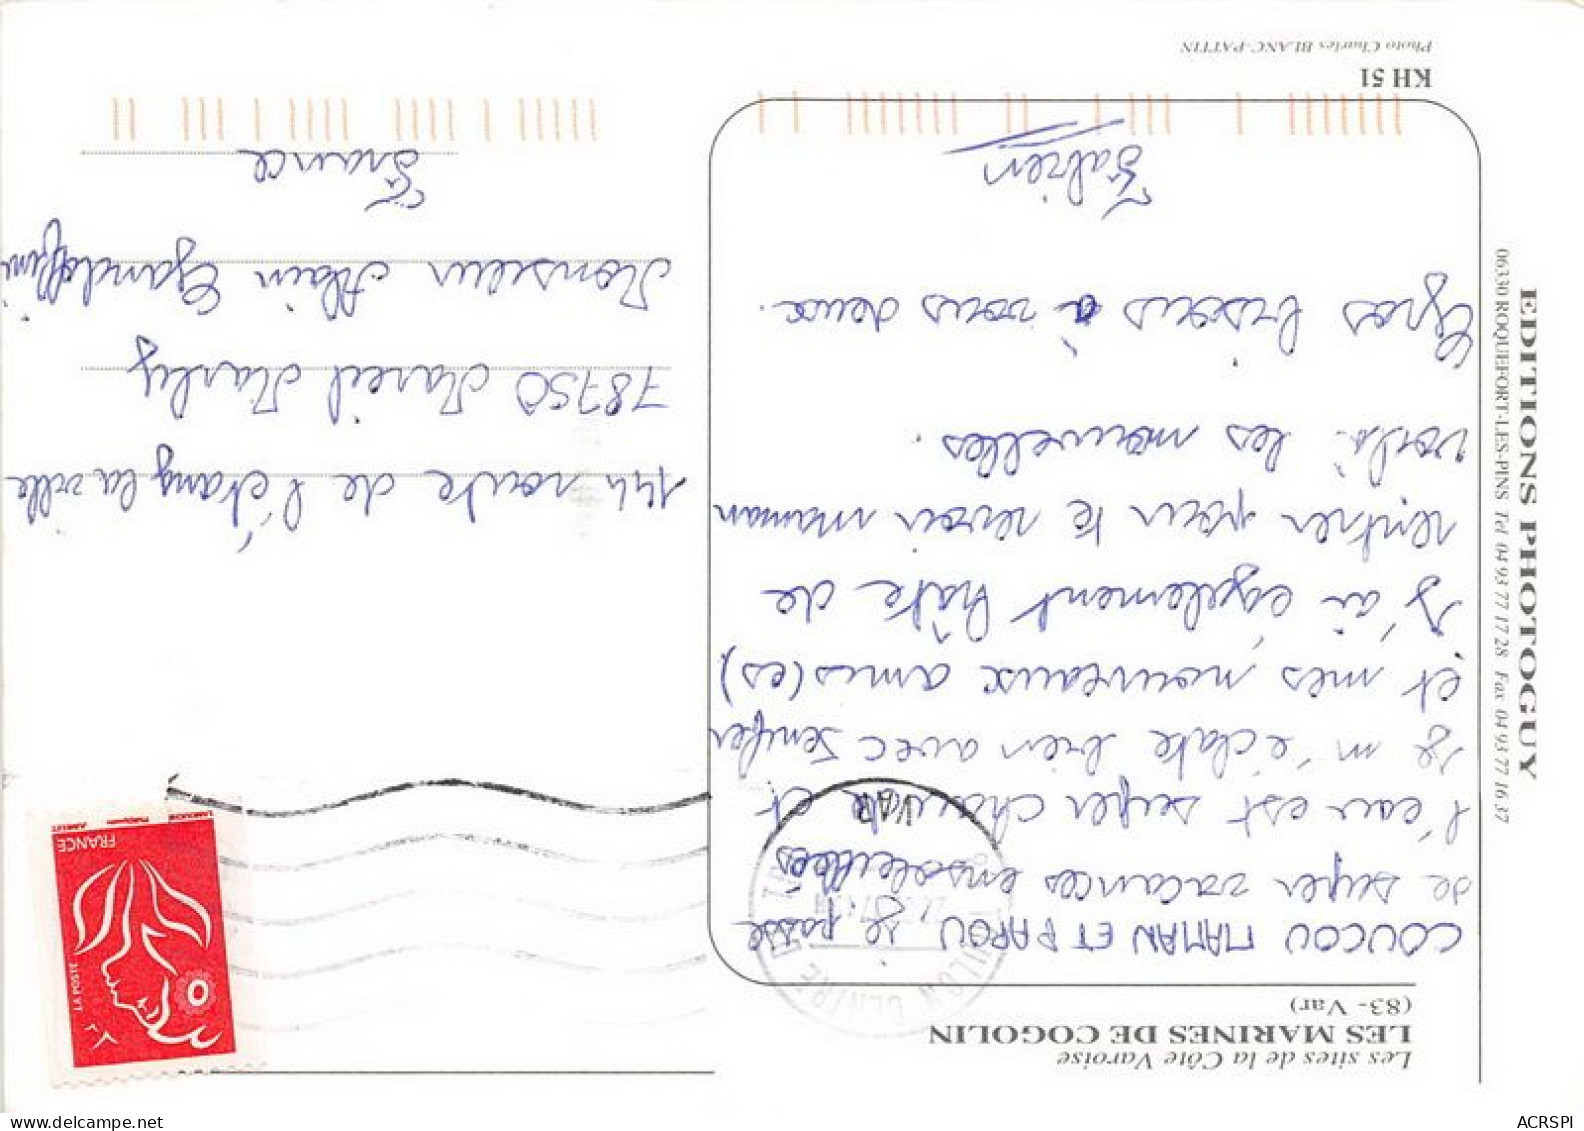 Les sites de la Côte Varoise
LES MARINES DE COGOLIN
(83- Var)
COUCOU MAMAN ET PAPOU, Je passe
de super vacances ensoleillées
l'eau est super chaude et
Je m'éclate bien avec Jenifer
et mes nouveaux amis(es)
J'ai également hâte de
rentrer pour te revoir maman
voila les nouvelles.
Gros bisous à vous deux.
Fabien
KH 51
Photo Charles BLANC-PATTIN
EDITIONS PHOTOGUY
06330 ROQUEFORT-LES-PINS Tel 04 93 77 17 28 Fax 04 93 77 16 37
CENTRE
VAR
LA POSTE
FRANCE
LAMOUCHE
JUMELET
144 route de l'étang la ville
78750 Mareil Marly
Monsieur Alain Gandolfini
France
ACRSPI
DELCAMPE.NET